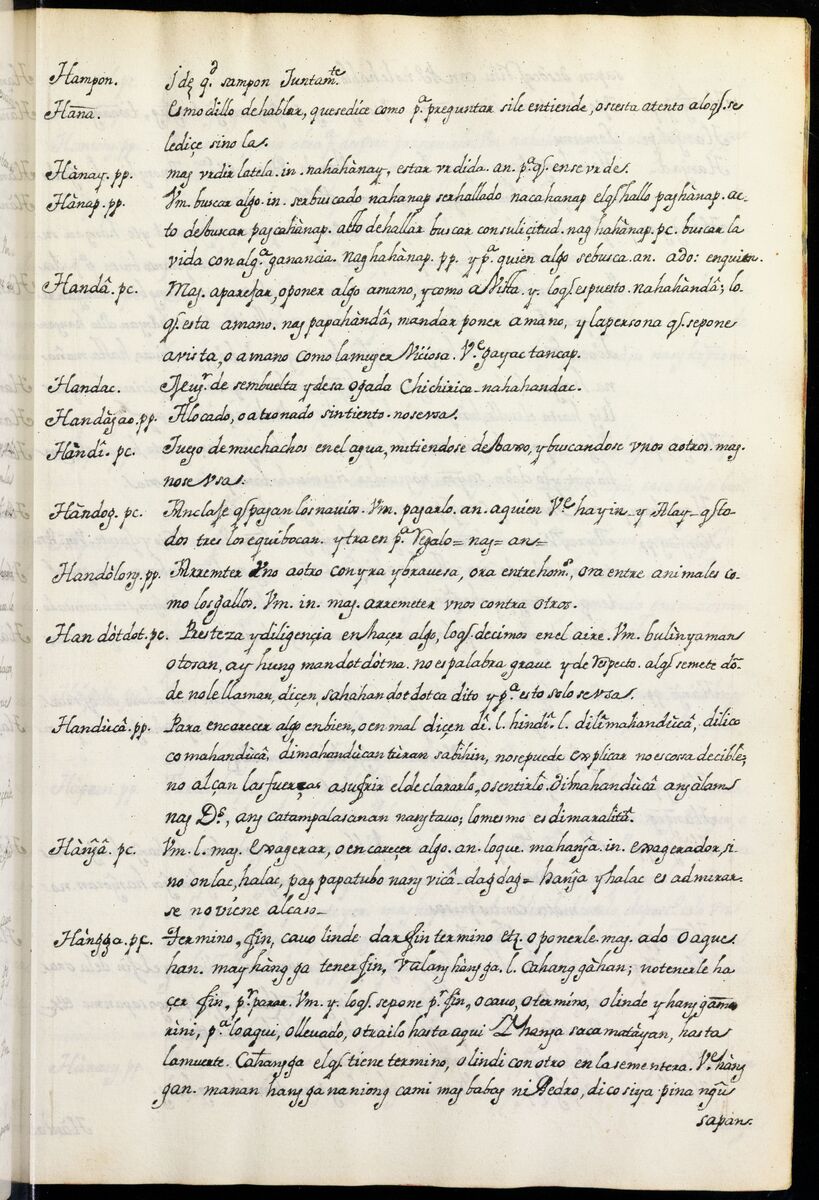 Hampon. Jdẽ q.d sampon Juntam.te
Hana. Esmodillo dehablar, quesedice como p.a preguntar sile entiende, osiesta atento aloq̃. se
lediçe sino las.
Hànay. pp. mag vrdir latela. in. nahahànay, estar vrdida. an. p.a q̃. ense vrde.
Hànap. pp. Vm. buscar algo. in. serbuscado nahanap serhallado nacahanap elq̃ hallo paghànap. ac-
to debuscar pagcahànap. acto dehallar buscar consuliçitud. nag hahànap. pc. buscar la
vida con alg.a ganancia. nag hahànap. pp. y p.a quien algo sebusca. an. ado: enquien.
Handâ. pc. Mag. aparejar, oponer algo amano, ycomo a Vista. y. loq̃ espuesto. nahahàndâ; lo
q̃. esta amano. nag papahàndâ, mandar poner amano, y lapersona q̃. sepone
avista, o amano como lamuger Viçiosa. V.e gayac tancap.
Handac. de sembuelta ydesa ogada Chichirica. nahahandac.
Handàgao. pp. Alocado, oatronado sintiento. nosevsa.
Hàndî. pc. Juego demuchachos enel agua, mitiendose debaxo, ybuscandose vnos aotros. mag.
nose vsa.
Hàndog. pc. Anclaje q̃ pagan losnavios. Vm. pagarlo. an. aquien V.e hayin y Alay q̃ to-
dos tres los equibocan. ytraen p.a regalo= nag= an=
Handòlong. pp. Arremter vno aotro conyra ybravesa, ora entrehom.s, ora entre animales co-
mo losgallos. Vm. in. mag. arremeter vnos contra otros.
Handòtdot. pc. Presteza ydiligençia enhaçer algo, loq̃. decimos enel aire. Vm. bulinyaman
otosan, ay hung mandotdòtna. noespalabra graue y de respecto. alq̃ semete dõ-
de nole llaman, diçen, sahahandotdotca dito y p.a esto solo sevsa.
Handùcâ. pp. Para encarecer algo enbien, oen mal diçen dî. l. hindî. l. dilî mahandùcâ, dilico
comahandùcâ, dimahandùcan tùran sabihin, nosepuede explicar noescossa decible,
no alcan lasfuerças asufrir eldeclararlo, osentirlo. Dimahandùcâ angàlam
nag D.s, ang catampalasanan nang tauo; lomesmo es dimaralità.
Hàngâ. pc. Vm. l. mag. exagerar, oencareçer algo. an. loque. mahanga. in. exagerador, si
no onlac, halac, pag papatubo nang vicâ dagdag= hanga yhalac es admirar-
se noviene alcaso
Hàngga. pc. Termino, fin, cauo linde dar fin termino etz. oponerle. mag. ado oaque
han. may hàngga tenerfin, Valang hàngga. l. Cahanggàhan; notenerle ha
çer fin, p.r parar. Vm. y. loq̃. sepone p.r fin, ocauo, otermino, olinde yhanggam
rini, p.a loaqui, ollevado, otrailo hasta aqui hanga sacamatàyan, hasta
lamuerte. Cahangga elq̃ tiene termino, olindi con otro en lasementera. V.e hàng
gan. manan hanggananiong cami mag babag ni Pedro, dico siya pina ngũ
sapan.